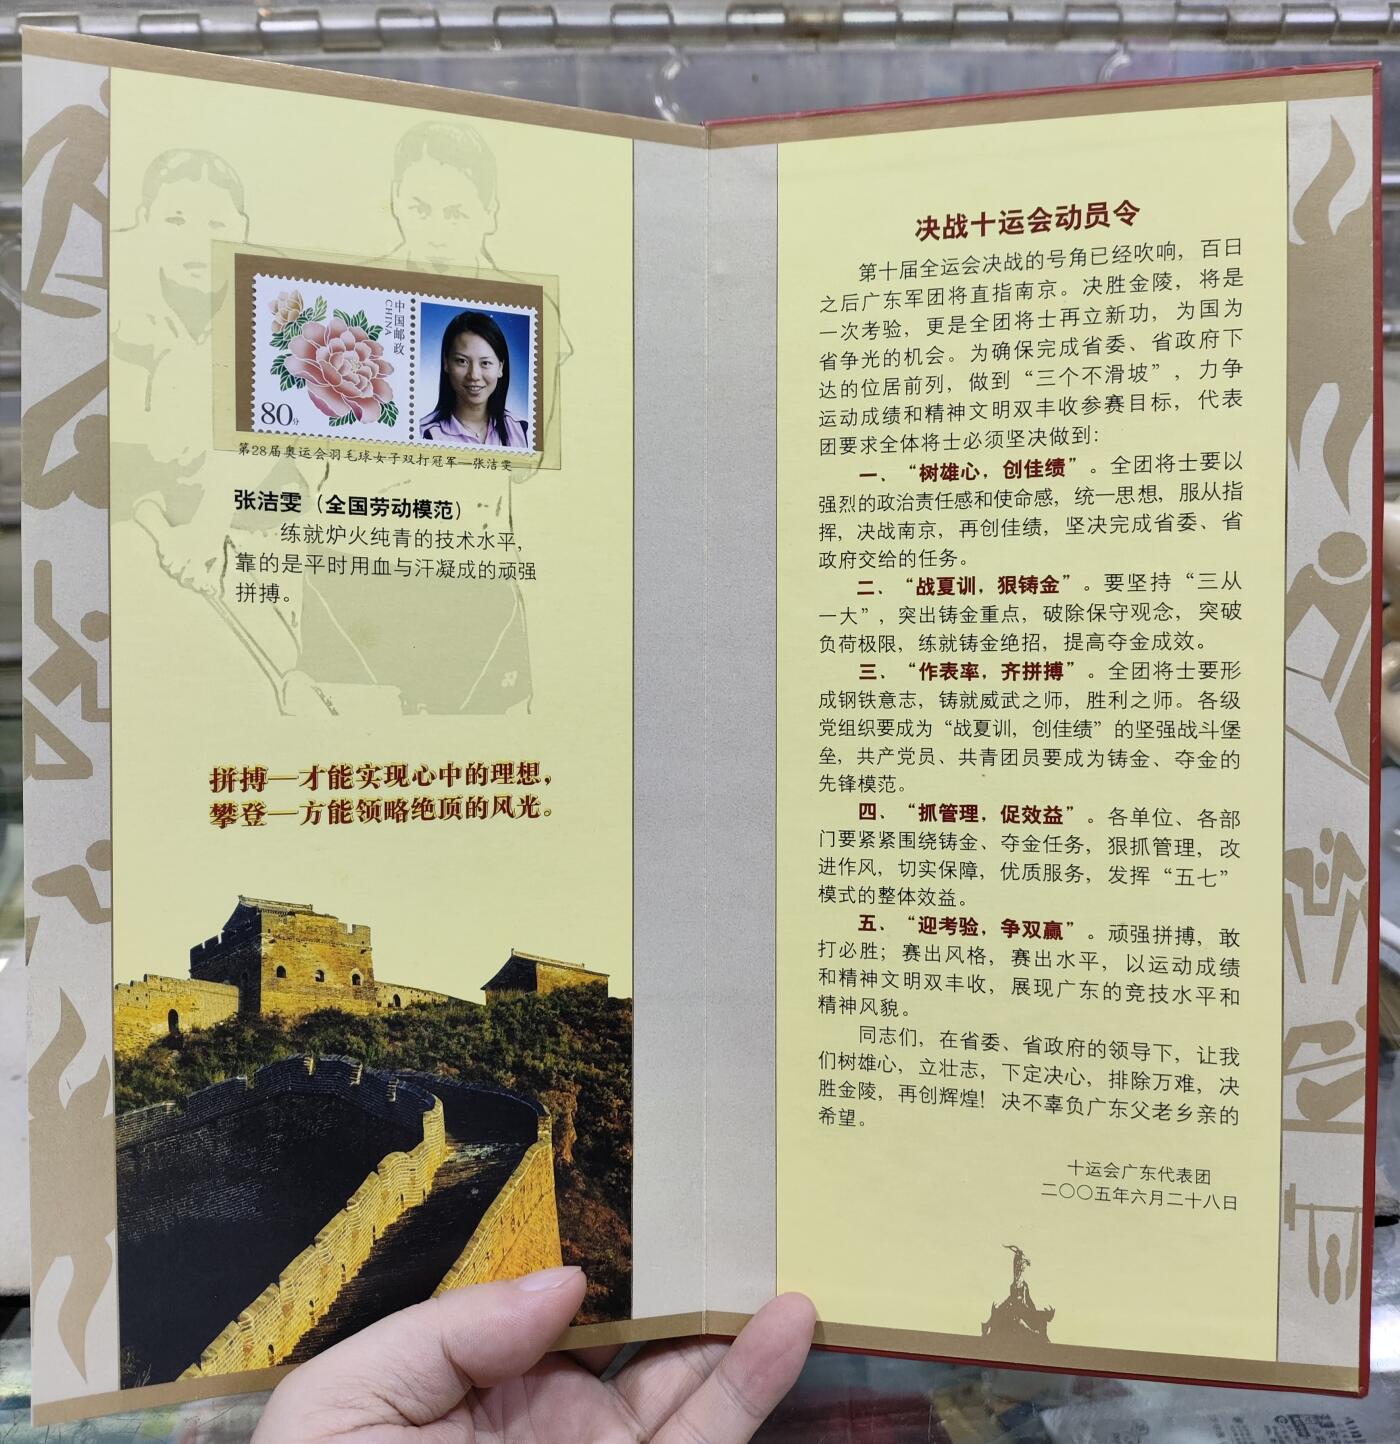 中国邮政
CHINA
80分
第28届奥运会羽毛球女子双打冠军—张洁雯
张洁雯（全国劳动模范）
练就炉火纯青的技术水平，
靠的是平时用血与汗凝成的顽强
拼搏。
拼搏—才能实现心中的理想，
攀登—方能领略绝顶的风光。
决战十运会动员令
第十届全运会决战的号角已经吹响，百日
之后广东军团将直指南京。决胜金陵，将是
一次考验，更是全团将士再立新功，为国为
省争光的机会。为确保完成省委、省政府下
达的位居前列，做到“三个不滑坡”，力争
运动成绩和精神文明双丰收参赛目标，代表
团要求全体将士必须坚决做到：
一、“树雄心，创佳绩”。全团将士要以
强烈的政治责任感和使命感，统一思想，服从指
挥，决战南京，再创佳绩，坚决完成省委、省
政府交给的任务。
二、“战夏训，狠铸金”。要坚持“三从
一大”，突出铸金重点，破除保守观念，突破
负荷极限，练就铸金绝招，提高夺金成效。
三、“作表率，齐拼搏”。全团将士要形
成钢铁意志，铸就威武之师，胜利之师。各级
党组织要成为“战夏训，创佳绩”的坚强战斗堡
垒，共产党员、共青团员要成为铸金、夺金的
先锋模范。
四、“抓管理，促效益”。各单位、各部
门要紧紧围绕铸金、夺金任务，狠抓管理，改
进作风，切实保障，优质服务，发挥“五七”
模式的整体效益。
五、“迎考验，争双赢”。顽强拼搏，敢
打必胜；赛出风格，赛出水平，以运动成绩
和精神文明双丰收，展现广东的竞技水平和
精神风貌。
同志们，在省委、省政府的领导下，让我
们树雄心，立壮志，下定决心，排除万难，决
胜金陵，再创辉煌！决不辜负广东父老乡亲的
希望。
十运会广东代表团
二〇〇五年六月二十八日